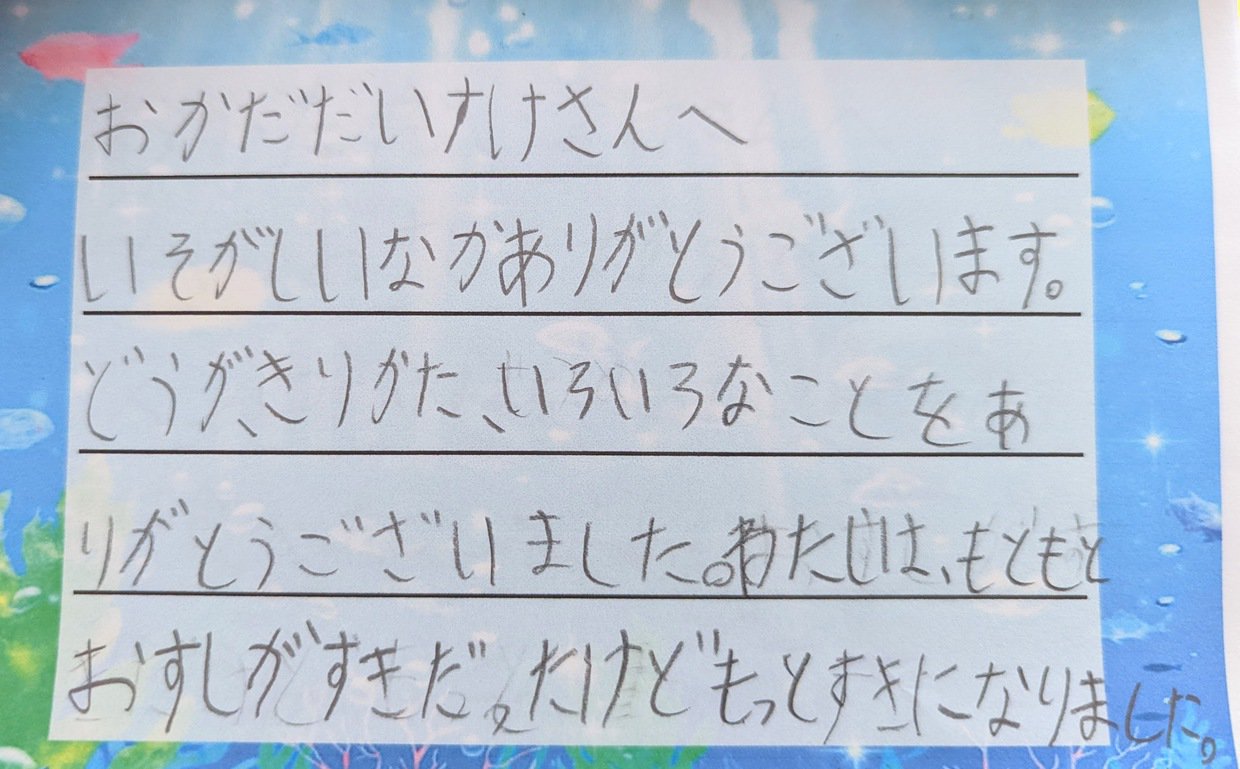 おかだだいすけさんへ
いそがしいなかありがとうございます。
どうが、きりかた、いろいろなことをあ
りがとうございました。わたしは、もともと
おすしがすきだ。たけどもっとすきになりました。